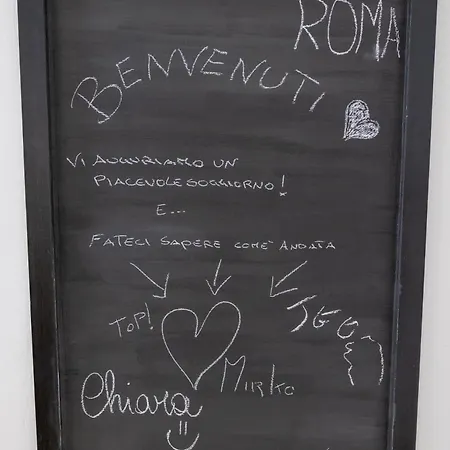 ROMA
BENVENUTI
VI AUGURIAMO UN
PIACEVOLE SOGGIORNO!
E...
FATECI SAPERE COM'È ANDATA
TOP!
Mirko
Chiara